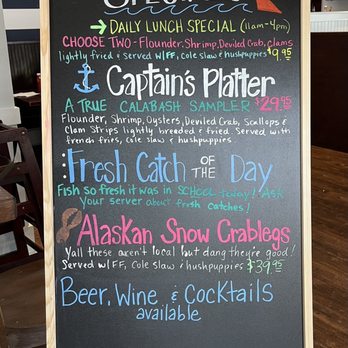 → DAILY LUNCH SPECIAL (11am-4pm)
CHOOSE TWO - Flounder, Shrimp, Deviled Crab, Clams
lightly fried & served w/FF, Cole slaw & hushpuppies $9.95
Captain's Platter
A TRUE CALABASH SAMPLER $29.95
Flounder, Shrimp, Oysters, Deviled Crab, Scallops &
Clam Strips lightly breaded & fried. Served with
french fries, Cole slaw & hushpuppies.
Fresh Catch OF THE Day
Fish so fresh it was in SCHOOL today! Ask
your server about fresh catches!
Alaskan Snow Crablegs
Yall these aren't local but dang they're good!
Served w/FF, Cole slaw & hushpuppies $39.95
Beer, Wine & Cocktails
available